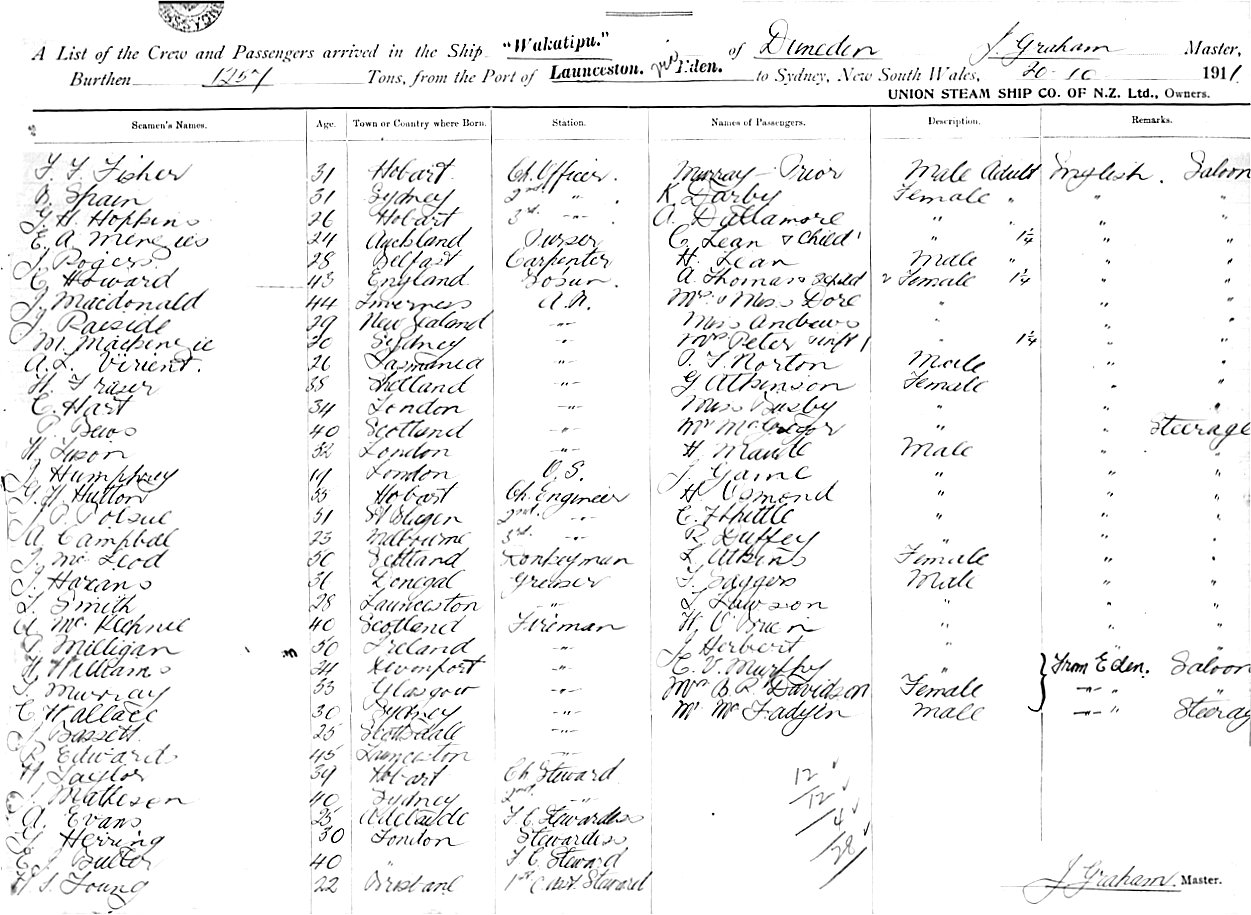 A List of the Crew and Passengers arrived in the Ship "Wakatipu." of Dunedin J. Graham Master,
Burthen 1257 Tons, from the Port of Launceston. Eden. to Sydney, New South Wales, 20-10 1911
UNION STEAM SHIP CO. OF N.Z. Ltd., Owners.
Seamen's Names. Age. Town or Country where Born. Station. Names of Passengers. Description. Remarks.
Fisher 31 Hobart Ch. Officer. Murray-Prior Male Adult English. Saloon
B. Spain 31 Sydney 2nd " . K. Darby Female " " "
G. H. Hopkins 26 Hobart 3rd - " - A. Dallamore " " " "
E. A. Menzies 24 Auckland Purser C. Lean & Child 1 " 1¼ " "
J. Rogers 28 Belfast Carpenter H. Lean Male " " "
C. Howard 43 England Bosun. A. Thomas & Child 2 Female 1¼ " "
J. Macdonald 44 Inverness A.B. Mrs & Miss Dore " " "
J. 29 New Zealand - " - Miss Andrews " " "
M. Mackenzie 20 Sydney - " - Mrs Peter & inft 1 " 1¼ " "
A. L. 26 Tasmania - " - Norton Male " "
H. Fraser - " - G Atkinson Female " "
C. Hart 34 London - " - Miss Busby " " "
P. Bews 40 Scotland - " - McGregor " " Steerage
H. 52 London - " - H. Male " "
J. Humphrey 19 London O.S. J. " " "
Hutton 55 Hobart Ch. Engineer H. Osmond " " "
J. P. 31 2nd - " - C. " " "
A. Campbell 23 Melbourne 3rd - " - Duffey " " "
J. McLeod 50 Scotland Donkeyman L. Atkins Female " "
31 Donegal Greaser Male " "
Smith 28 Launceston - " - Lawson " " "
A. 40 Scotland Fireman H. O'Brien " " "
Milligan 50 Ireland - " - J. Herbert " " "
H. Williams 24 Devonport - " - C. V. Murphy " From Eden. Saloon
Murray 53 Glasgow - " - Mrs B. R. Davidson Female - " - " "
C. Wallace 30 Sydney - " - Mr McFadyen Male - " - " Steerag
J. Bassett 25 Scottsdale - " -
R. Edwards 45 Launceston - " -
H. Taylor 39 Hobart Ch. Steward 12
Matheson 40 Sydney 2nd - " - /12
A. Evans 25 Adelaide F. C. Stewardess /4
G. Herring 30 London Stewardess
Butler 40 " F. C. Steward /28
Young 22 Brisbane 1st C. Steward
J. Graham. Master.